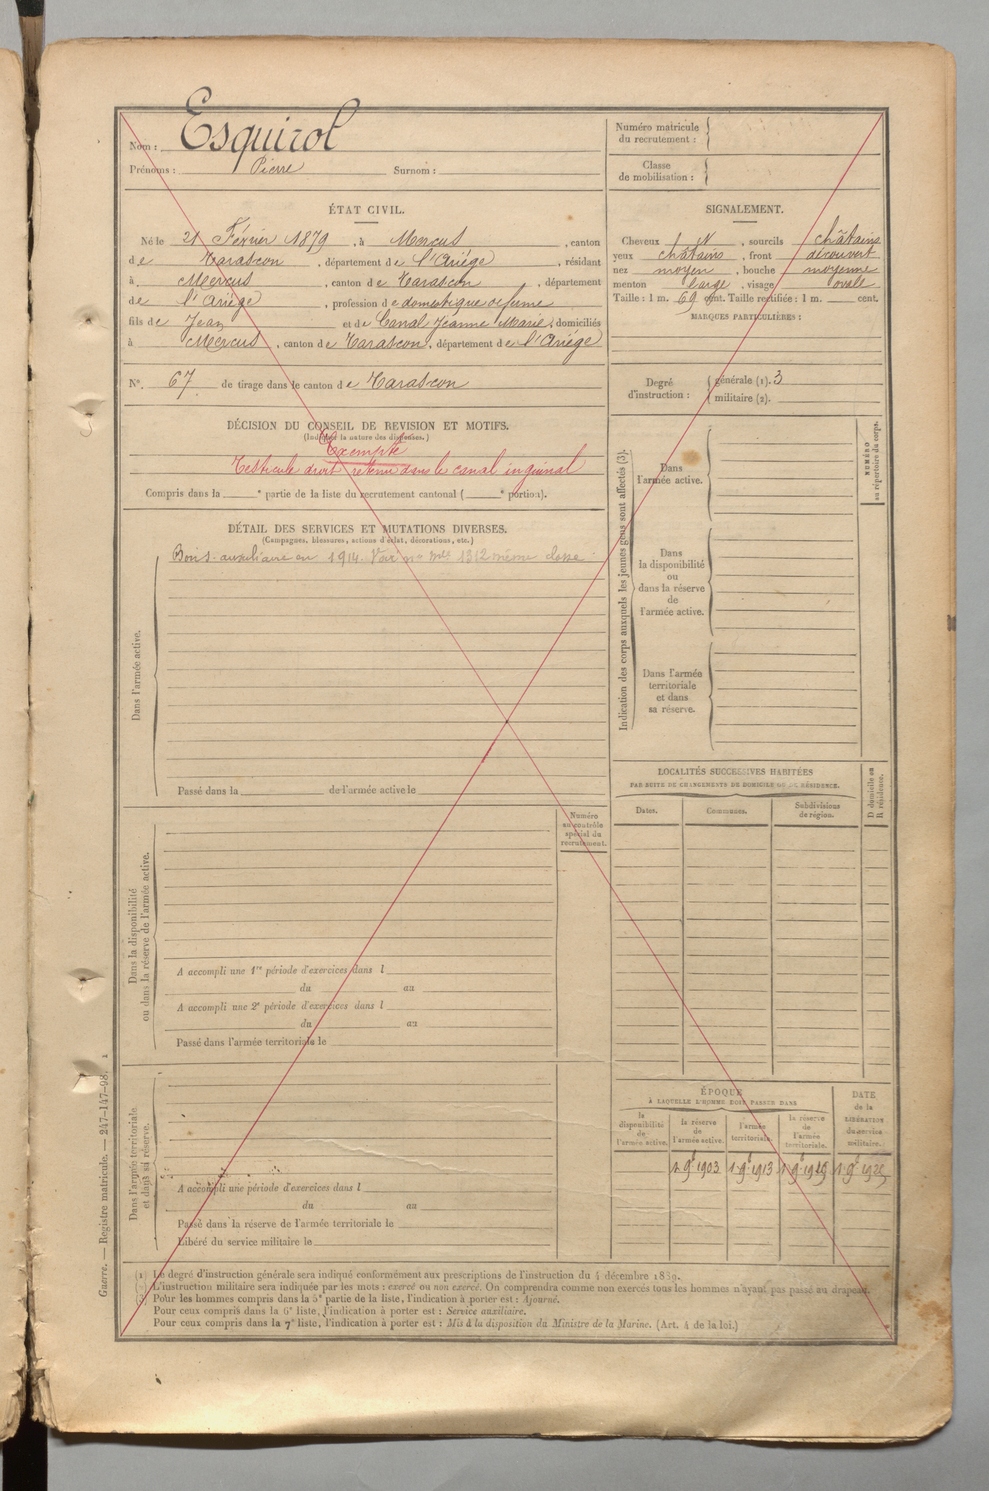 Nom : Esquirol
Prénoms : Pierre Surnom :
Numéro matricule
du recrutement :
Classe
de mobilisation :
ÉTAT CIVIL.
Né le 21 Février 1879, à Mercus, canton
de Tarascon, département de l'Ariége, résidant
à Mercus, canton de Tarascon, département
de l'Ariége, profession de domestique
fils de Jean et de Canal Jeanne Marie, domiciliés
à Mercus, canton de Tarascon, département de l'Ariége
N°. 67 de tirage dans le canton de Tarascon
SIGNALEMENT.
Cheveux N, sourcils châtains
yeux châtains, front découvert
nez moyen, bouche moyenne
menton large, visage ovale
Taille : 1 m. 69 cent. Taille rectifiée : 1 m. cent.
MARQUES PARTICULIÈRES :
Degré
d'instruction :
générale (1). 3
militaire (2).
DÉCISION DU CONSEIL DE REVISION ET MOTIFS.
(Indiquer la nature des dispenses.)
Exempté
Testicule droit retenu dans le canal inguinal
Compris dans la e partie de la liste du recrutement cantonal ( e portion).
DÉTAIL DES SERVICES ET MUTATIONS DIVERSES.
(Campagnes, blessures, actions d'éclat, décorations, etc.)
Bon s. auxiliaire en 1914. Voir n° mle 1312 même classe
Dans l'armée active.
Passé dans la de l'armée active le
Indication des corps auxquels les jeunes gens sont affectés (3).
Dans
l'armée active.
Dans
la disponibilité
ou
dans la réserve
de
l'armée active.
Dans l'armée
territoriale
et dans
sa réserve.
NUMÉRO
au répertoire du corps.
LOCALITÉS SUCCESSIVES HABITÉES
PAR SUITE DE CHANGEMENTS DE DOMICILE OU DE RÉSIDENCE.
Dates.
Communes.
Subdivisions
de région.
D domicile ou
R résidence.
Numéro
au contrôle
spécial du
recrutement.
Dans la disponibilité
ou dans la réserve de l'armée active.
A accompli une 1re période d'exercices dans l
du au
A accompli une 2e période d'exercices dans l
du au
Passé dans l'armée territoriale le
Dans l'armée territoriale
et dans sa réserve.
A accompli une période d'exercices dans l
du au
Passé dans la réserve de l'armée territoriale le
Libéré du service militaire le
ÉPOQUE
À LAQUELLE L'HOMME DOIT PASSER DANS
la
disponibilité
de
l'armée active.
la réserve
de
l'armée active.
l'armée
territoriale.
la réserve
de
l'armée
territoriale.
DATE
de la
LIBÉRATION
du service
militaire.
1. 9e 1903 1. 9e 1913 1. 9e 1919 1. 9e 1925
(1) Le degré d'instruction générale sera indiqué conformément aux prescriptions de l'instruction du 4 décembre 1889.
(2) L'instruction militaire sera indiquée par les mots : exercé ou non exercé. On comprendra comme non exercés tous les hommes n'ayant pas passé au drapeau.
(3) Pour les hommes compris dans la 5e partie de la liste, l'indication à porter est : Ajourné.
Pour ceux compris dans la 6e liste, l'indication à porter est : Service auxiliaire.
Pour ceux compris dans la 7e liste, l'indication à porter est : Mis à la disposition du Ministre de la Marine. (Art. 4 de la loi.)
Guerre. — Registre matricule. — 247-147-98.